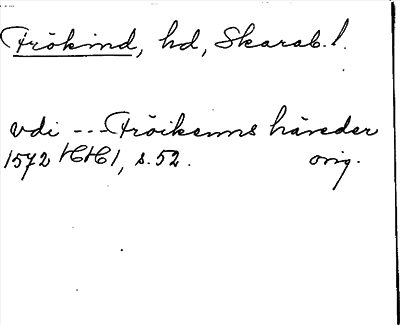 Frökind, hd, Skarab. l.
vdi --- Fröikenns häreder
1572 HH 1, s. 52. orig.